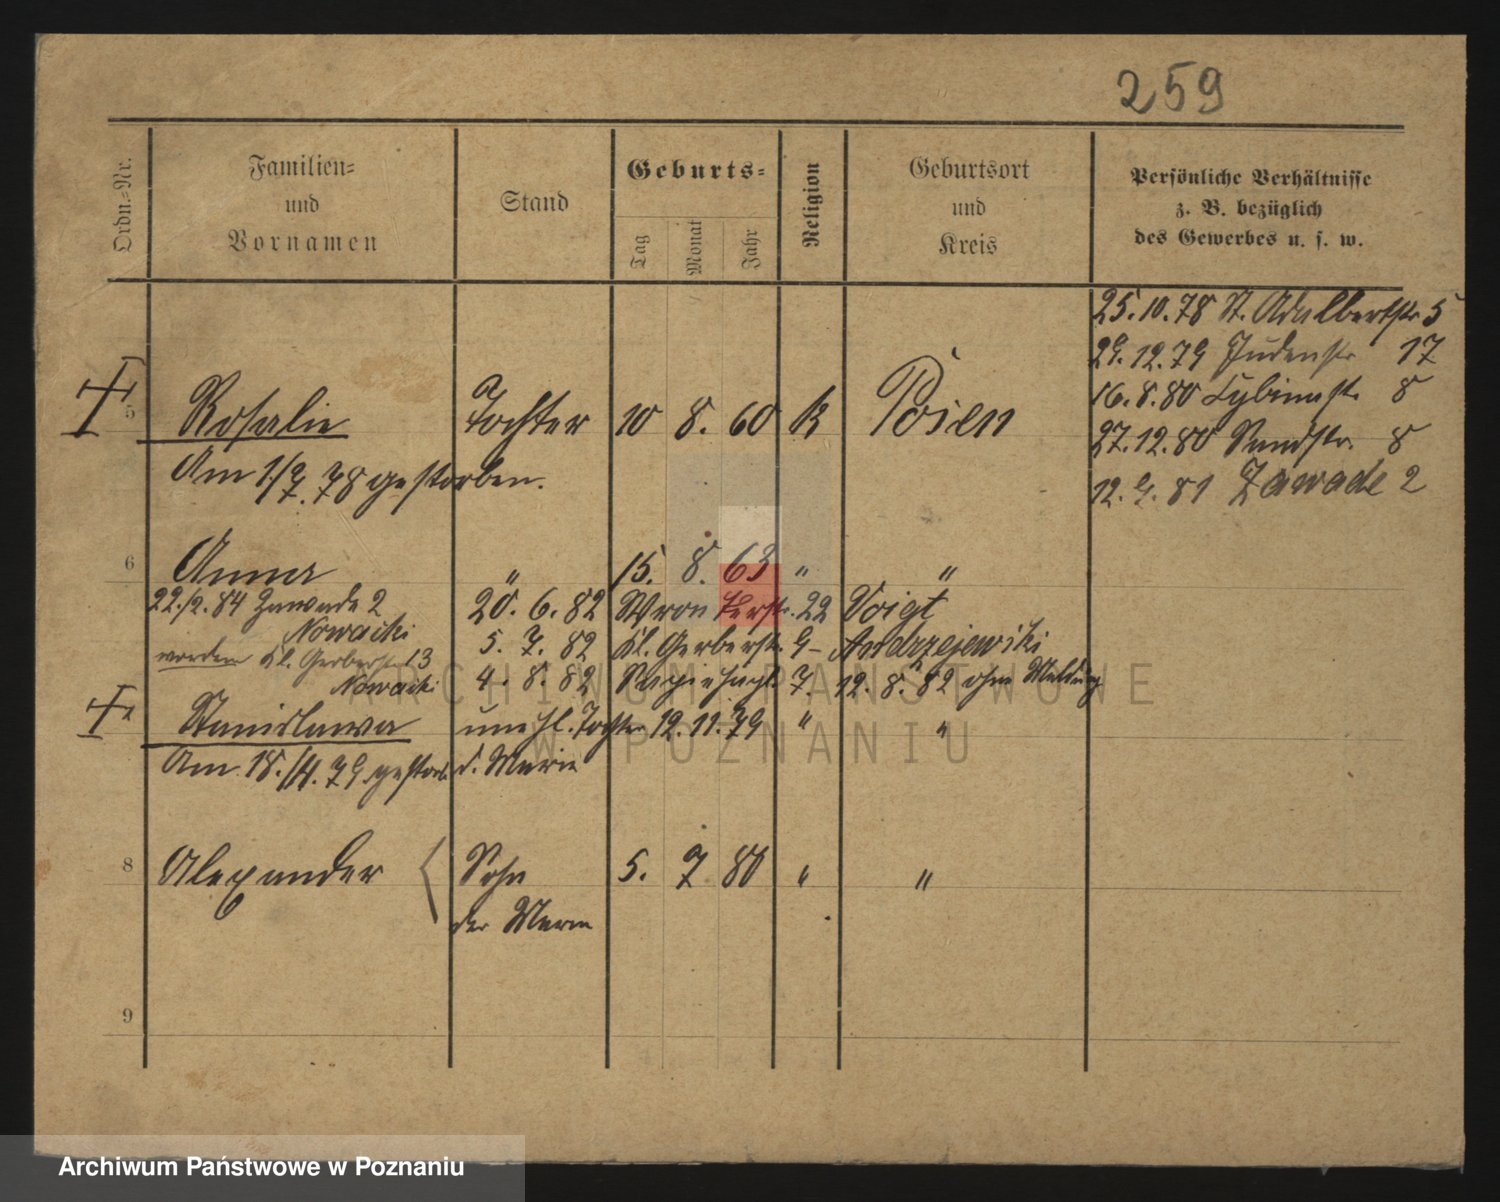 259
Ordn.-Nr.
Familien-
und
Vornamen
Stand
Geburts-
Tag
Monat
Jahr
Religion
Geburtsort
und
Kreis
Persönliche Verhältnisse
z. B. bezüglich
des Gewerbes u. s. w.
25.10.78 St. Adalbertstr 5
29.12.79 Judenstr 17
16.8.80 8
27.12.80 Sandstr. 8
12.9.81 Zawade 2
5 Rosalie Tochter 10 8. 60 K Posen
Am 1/7.78 gestorben.
6 Anna " 15. 8. 63 " "
22./2.84 Zawade 2 20. 6. 82 Wronkerstr. 22 Voigt
Nowacki
5. 7. 82 Kl. Gerberstr. 9 Andrzejewski
Kl. Gerberstr 13
Nowacki 4. 8. 82 7. 12. 8. 82 ohne Meldung
Stanislawa unehl. Tochter 12. 11. 79 " "
Am 18./11.79 gestorb. d. Marie
8 Alexander Sohn 5. 7 80 " "
der Marie
9
ARCHIWUM PAŃSTWOWE
W POZNANIU
Archiwum Państwowe w Poznaniu